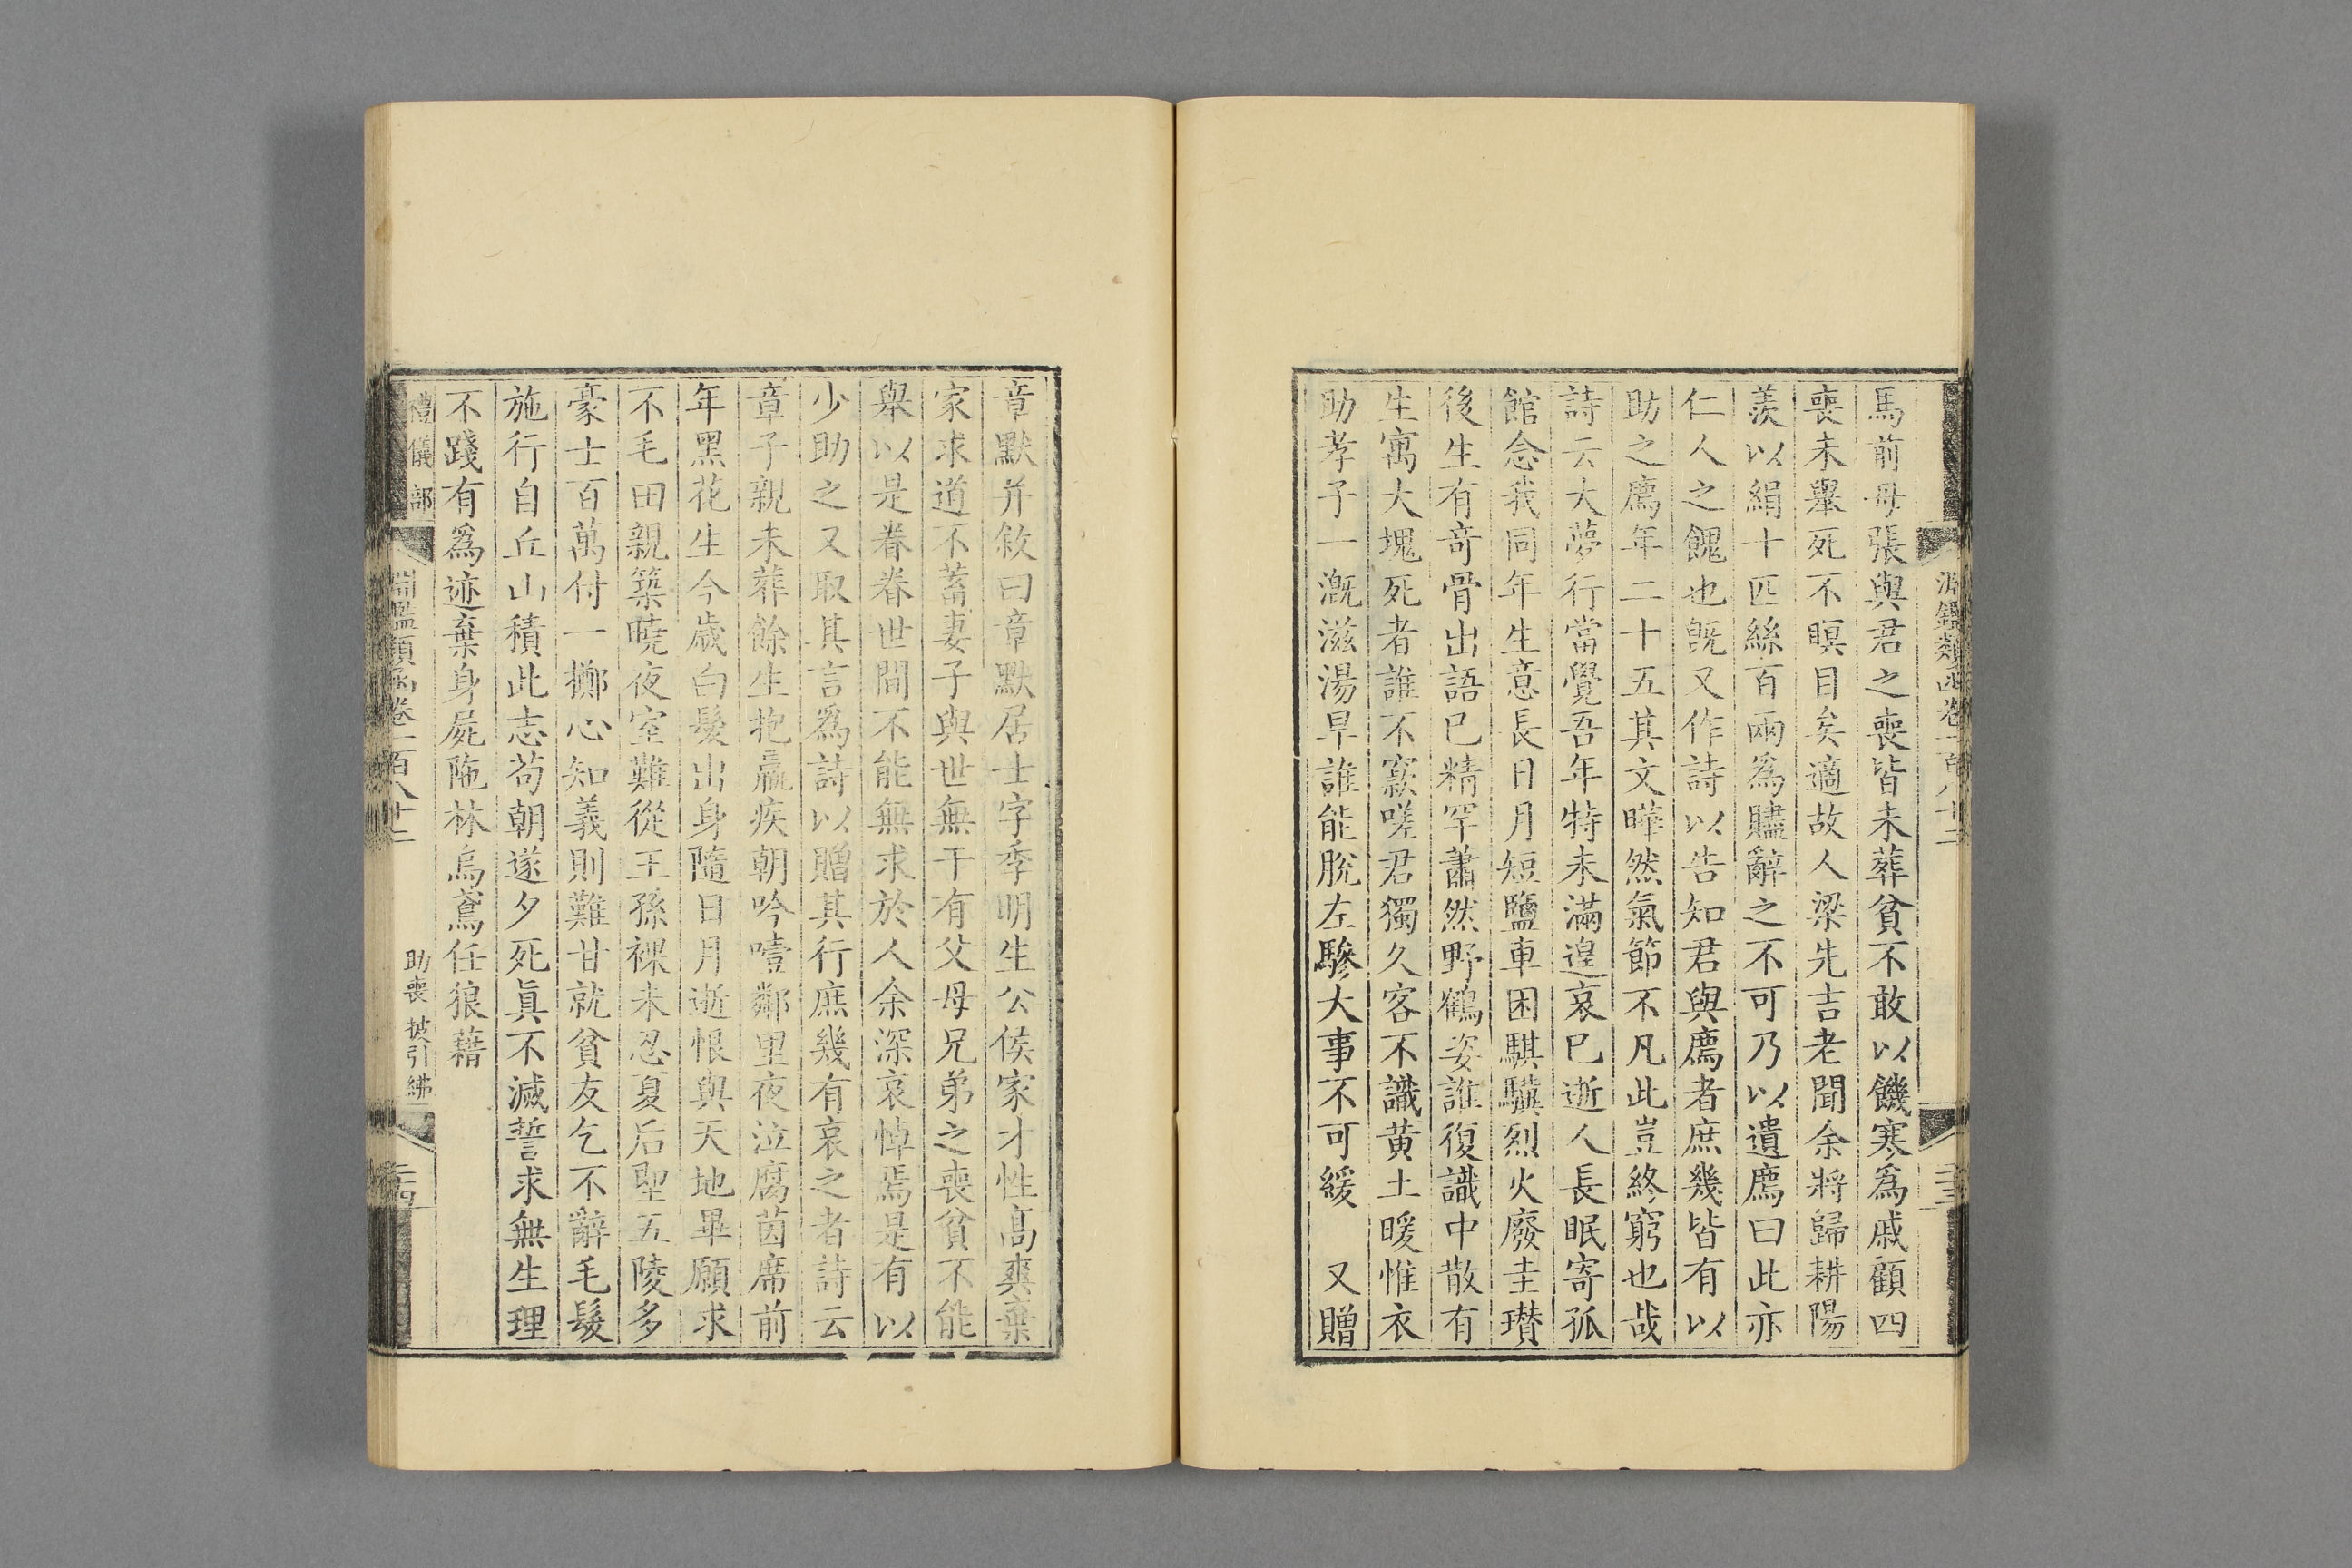 淵鑑類函卷一百八十二
二十三
馬前母張與君之喪皆未葬貧不敢以饑寒爲戚顧四
喪未舉死不瞑目矣適故人梁先吉老聞余將歸耕陽
羨以絹十匹絲百兩爲贐辭之不可乃以遺廌曰此亦
仁人之餽也既又作詩以告知君與廌者庶幾皆有以
助之廌年二十五其文曄然氣節不凡此豈終窮也哉
詩云大夢行當覺吾年特未滿遑哀已逝人長眠寄孤
館念我同年生意長日月短鹽車困騏驥烈火廢圭瓚
後生有奇骨出語已精罕蕭然野鶴姿誰復識中散有
生寓大塊死者誰不窾嗟君獨久客不識黃土暖惟衣
助孝子一溉滋湯旱誰能脫左驂大事不可緩　又贈
章默幷敘曰章默居士字季明生公侯家才性高爽棄
家求道不蓄妻子與世無干有父母兄弟之喪貧不能
舉以是眷眷世間不能無求於人余深哀悼焉是有以
少助之又取其言爲詩以贈其行庶幾有哀之者詩云
章子親未葬餘生抱羸疾朝吟噎鄰里夜泣腐茵席前
年黑花生今歲白髮出身隨日月逝恨與天地畢願求
不毛田親築曉夜室難從王孫裸未忍夏后聖五陵多
豪士百萬付一擲心知義則難甘就貧友乞不辭毛髮
施行自丘山積此志茍朝遂夕死眞不滅誓求無生理
不踐有爲迹棄身屍陁林烏鳶任狼藉
禮儀部
淵鑑類函卷一百八十二
助喪　披引紼
二十四